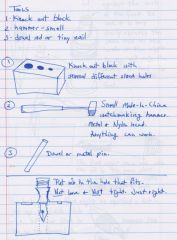 Tools
1- Knock out block
2- hammer - small
3- dowel rod or tiny nail
1 Knock out block with
several different sized holes
2 Small Made-In-China
watchmaking hammer.
Metal & Nylon head.
Anything can work.
3 Dowel or metal pin.
Put in to the hole that fits.
Not loose & Not tight. Just right.